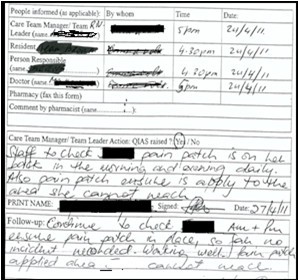 People informed (as applicable): By whom Time Date:
Care Team Manager/ Team RN
Leader (name 5pm 24/4/11
Resident 4.30pm 24/4/11
Person Responsible
(name 4.30pm 24/4/11
Doctor (name 5pm 24/4/11
Pharmacy (fax this form)
Comment by pharmacist (name
Care Team Manager/ Team Leader Action: QIAS raised? Yes / No
Staff to check pain patch is on her
in the morning and evening daily.
Also pain patch ensure is apply to the
area she cannot reach
PRINT NAME: Signed: Date: 27/4/11
Follow-up: Continue to check Am + pm
ensure pain patch in place, so far no
incident recorded. Working well. Pain patch
applied area cannot reach